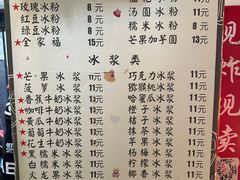 ★玫瑰冰粉 8元
红豆冰粉 8元
绿豆冰粉 8元
★全家福 15元
汤圆冰粉
糯米冰粉 8元
芒果加芋圆 13元
冰浆类
★芒果冰浆 11元
菠萝冰浆 11元
★香蕉牛奶冰浆 12元
★咖啡牛奶冰浆 11元
★黄瓜牛奶冰浆 11元
葡萄牛奶冰浆 11元
★花生牛奶冰浆 11元
★黑糯米冰浆 11元
火龙果冰浆 11元
巧克力冰浆 11元
猕猴桃冰浆 11元
哈密瓜冰浆 11元
橙子冰浆 11元
桔子冰浆 11元
抹茶冰浆 11元
苹果冰浆 11元
杨梅冰浆 11元
柠檬冰浆 11元
椰香冰浆 11元
现炸现卖